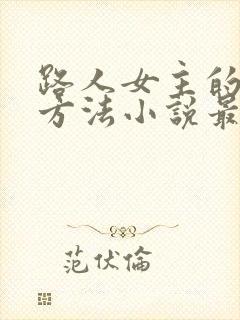 路人女主的
方法小説最
范伏倫